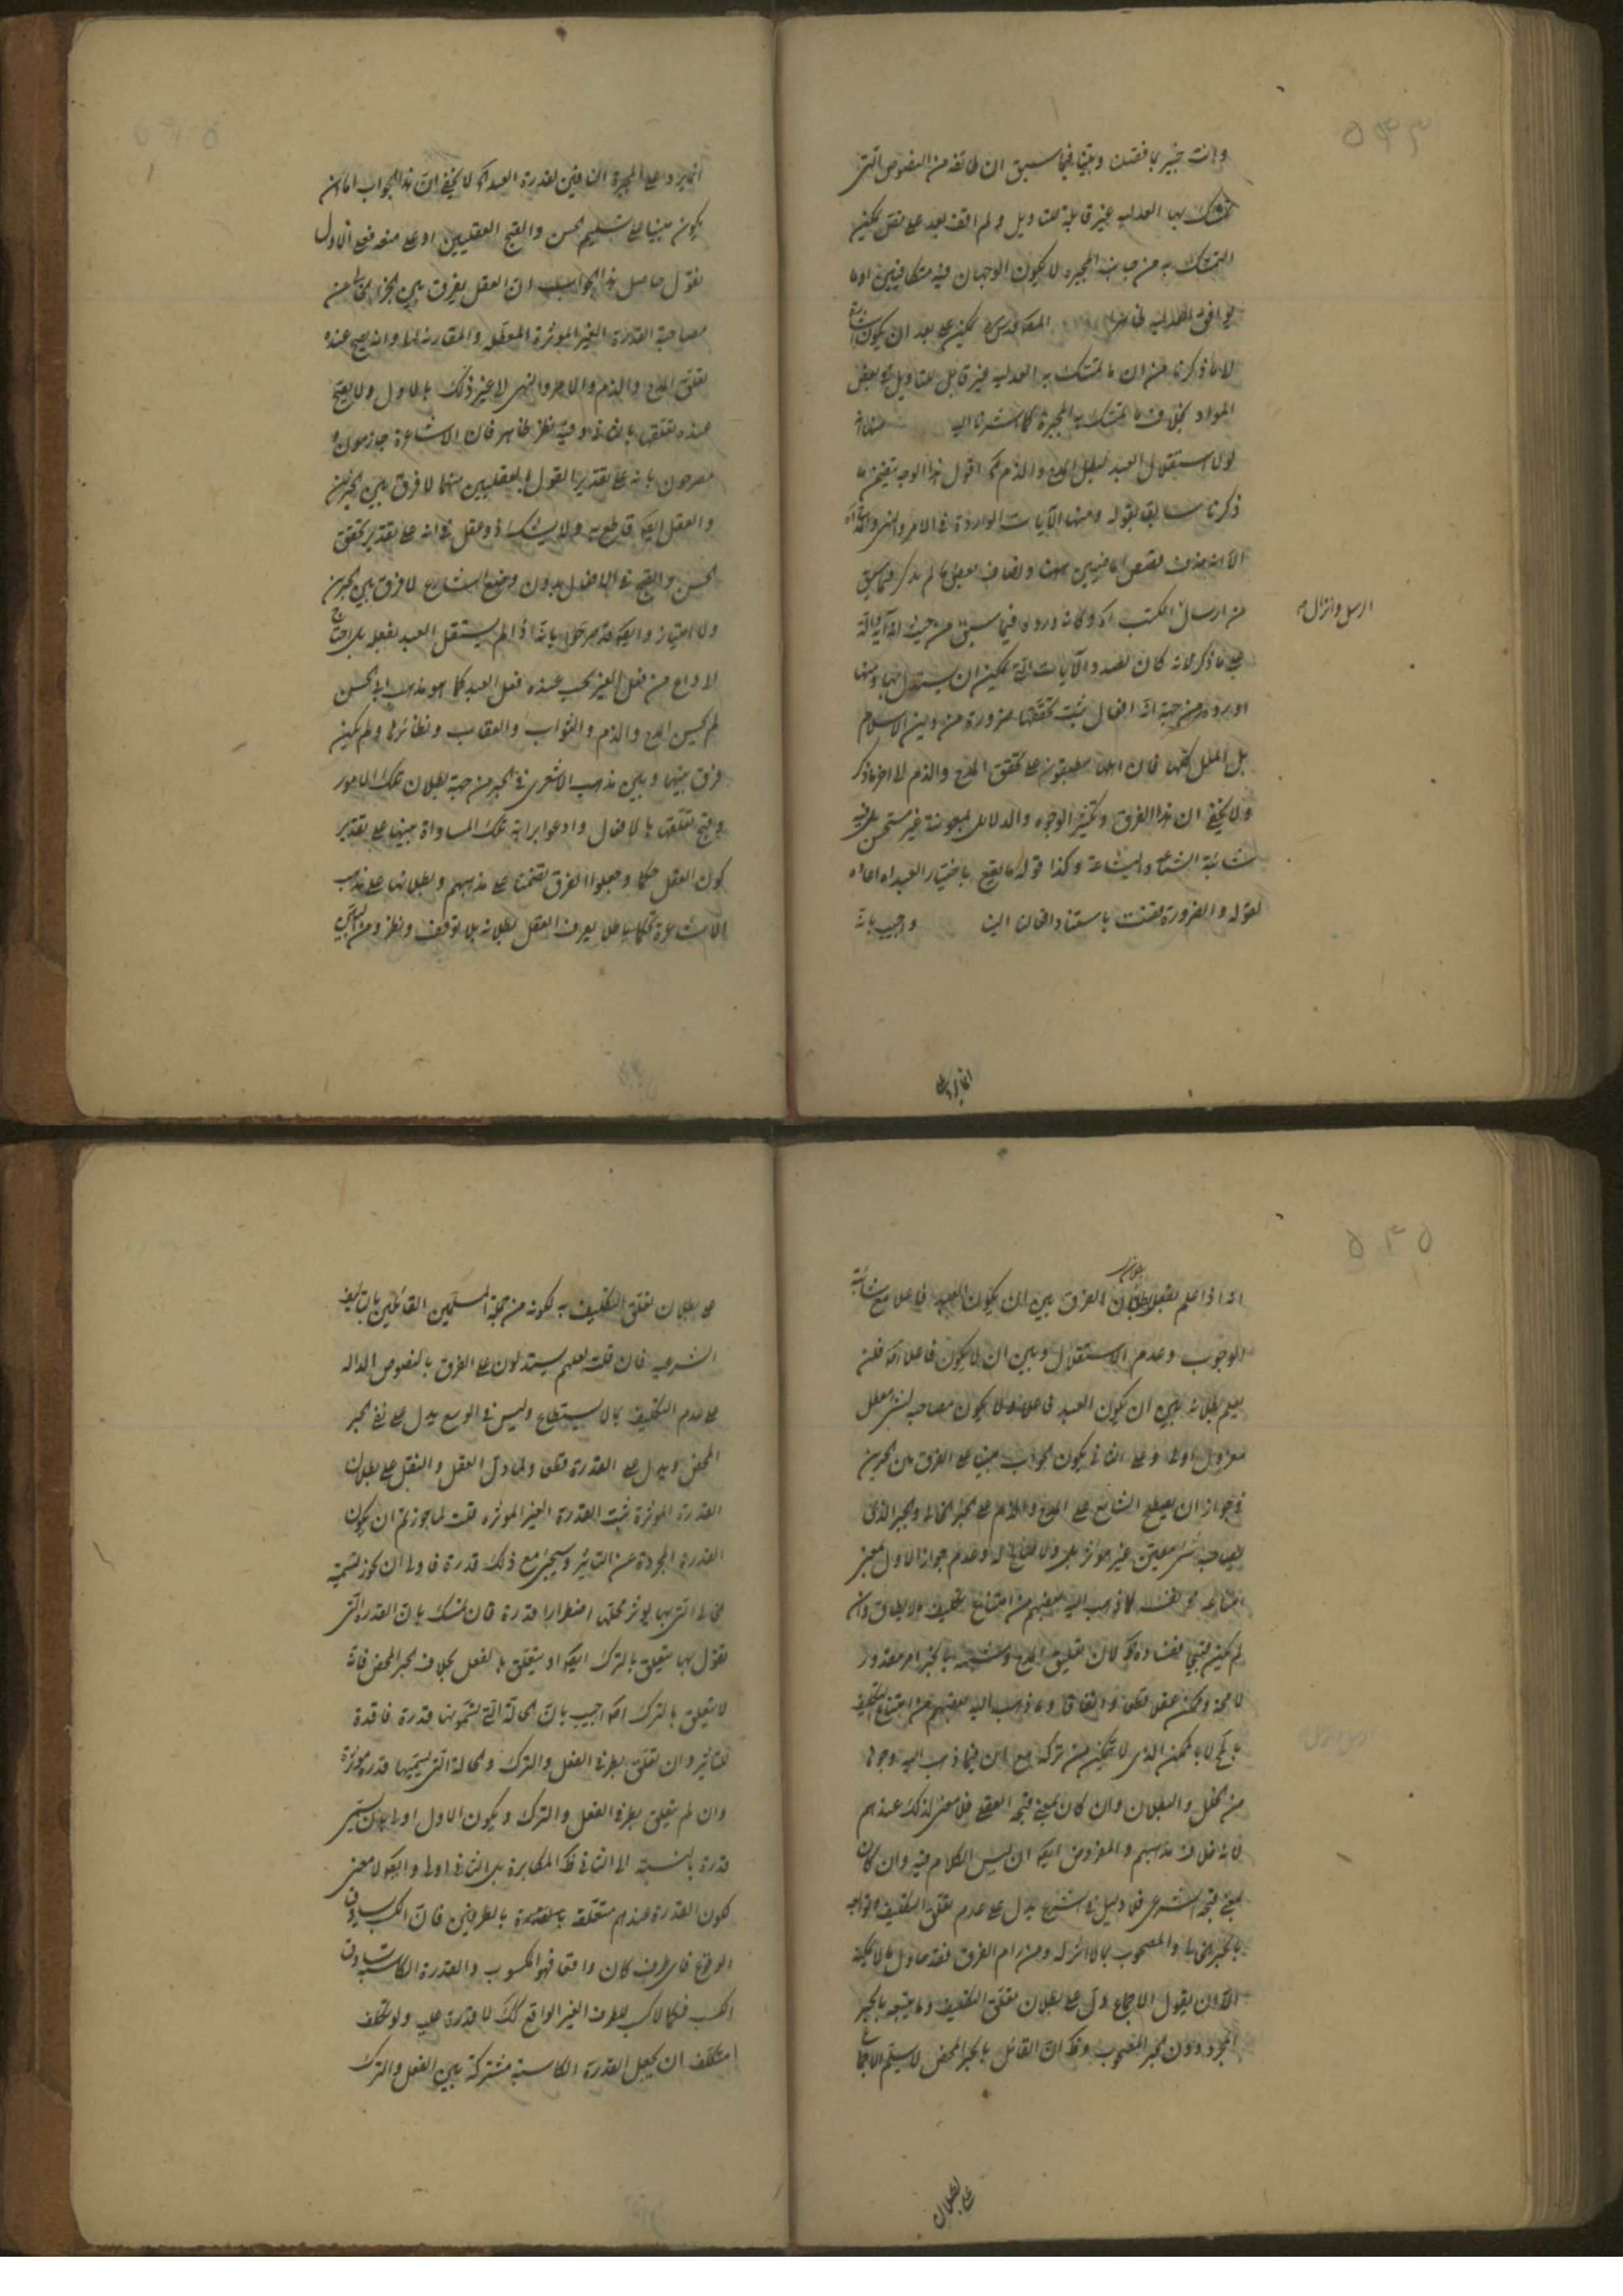 وانت خبير بما فصلنا وبينا فيما سبق ان طائفة من النصوص التي
تمسك بها العدليه غير قابلة للتاويل ولم اقف بعد على نص يمكن
التمسك به من جانب المجبره لا يكون الوجهان فيه متكافيين او ما
يوافق العدليه المص قدس سره يمكن على بعد ان يكون اشارة
لا ما ذكرنا من ان ما تمسك به العدليه غير قابل للتاويل في بعض
المواد بخلاف ما تمسك به المجبرة كما اشرنا اليه
لولا استقلال العبد لبطل المدح والذم آه اقول هذا الوجه يتضمن ما
ذكرنا سابقا بقوله ومنها الآيات الواردة في الامر والنهي
الا انه حذف بعض ما فيه هنا واضاف بعض ما لم يذكر فيما سبق
من ارسال الكتب آه وكانه اورده فيما سبق من حيث
الرسل وانزال صح
على ما ذكر لانه كان بصدد الآيات التي يمكن ان يستدل بها وهنا
اورده من جهة انه افعال ثبت تحققها ضرورة من دين الاسلام
بل الملل كلها فان اهلها مطبقون على تحقق المدح والذم لا آخر ما ذكر
ولا يخفى ان هذا الفرق وتكثير الوجوه والدلائل بمعونته غير مستحسن بل فيه
شائبة الشناعة والبشاعة وكذا قوله ما يقع باختيار العبد اه
لقوله والضرورة قضت باستناد افعالنا الينا واجيب بانه
انما يرد على
انما يرد على المجبرة النافين لقدرة العبد آه لا يخفى ان هذا الجواب اما ان
يكون مبنيا على تسليم الحسن والقبح العقليين او على منعه فعلى الاول
نقول حاصل هذا الجواب ان العقل يفرق بين الجبر الخالص عن
مصاحبة القدرة الغير الموثرة المعطلة والمقارنة لها وانه يصح عنده
تعلق المدح والذم والامر والنهي الى غير ذلك بالاول ولا يصح
عنده تعلقها بالثاني وفيه نظر ظاهر فان الاشاعرة جازمون و
مصرحون بانه على تقدير القول بالعقليين منهما لا فرق بين الجبرين
والعقل ايضا قاطع به ولا يشك ذو عقل في انه على تقدير تحقق
الحسن والقبح في الافعال بدون وضع الشارع لا فرق بين الجبرين
ولا امتياز وايضا قد صرحوا بانه اذا لم يستقل العبد بفعله بل احتاج
الى داع من فعل الغير يجب عنده فعل العبد كما هو مذهب ابي الحسين
لم يحسن المدح والذم والثواب والعقاب ونظائرها ولم يكن
فرق بينها وبين مذهب الاشعري في الجبر من جهة بطلان تلك الامور
وقبح تعلقها بالافعال وادعوا بداهة تلك المساواة بينها على تقدير
كون العقل حكما وجعلوا الفرق بصحتها على مذهبهم وبطلانها على مذهب
الاشاعرة تحكما باطلا يعرف العقل بطلانه بلا توقف ونظر ومن العجب
انه اذا علم بالبديهة بطلان الفرق بين ان يكون العبد فاعلا مع شائبة
الوجوب وعدم الاستقلال وبين ان لا يكون فاعلا اصلا فلان
يعلم بطلانه بين ان يكون العبد فاعلا ولا يكون مصاحبه لشيء معطل
معزول اولى وعلى الثاني يكون الجواب مبنيا على الفرق بين الجبرين
في جواز ان يصطلح الشارع على المدح والذم على الجبر الخالص والجبر الذي
يصاحبه شيء معين غير مؤثر بل ولا وعدم جواز الاول بمعنى
امتناعه في نفسه كما ذهب اليه بعضهم من امتناع تكليف ما لا يطاق وان
لم يكن قبيحا ففساده آه لان تعليق المدح وشبهه بالجبر امر مقدور
لا محة وممكن عقلي قطعا واتفاقا وما ذهب اليه بعضهم من امتناع التكليف
بالمحال لا بالممكن الذي لا يتمكن من تركه مع ان فيما ذهب اليه وجوها
من الخلل والبطلان وان كان بمعنى قبحه العقلي فلا معنى لذلك عندهم
لانه خلاف مذهبهم والمفروض ايضا ان ليس الكلام فيه وان كان
بمعنى قبحه الشرعي فلا دليل في الشرع يدل على عدم تعلق التكليف وتوابعه
بالجبر الخالص والمصحوب بما لا اثر له ومن رام الفرق فقد حاول ما لا يمكنه
الا ان يقول الاجماع دل على بطلان تعلق التكليف وما يتبعه بالجبر
المجرد دون الجبر المصحوب وظ ان القائل بالجبر المحض لا يسلم الاجماع
على بطلان
على بطلان تعلق التكليف به لكونه من جملة المسلمين القائلين بالتكليف
الشرعية فان قلت لعلهم يستدلون على الفرق بالنصوص الدالة
على عدم التكليف بما لا يستطاع وليس في الوسع يدل على نفي الجبر
المحض ويدل على القدرة قطعا ولما دل العقل والنقل على بطلان
القدرة الموثرة ثبت القدرة الغير الموثره قلت لما جوزتم ان يكون
القدرة المجردة عن التاثير وسمي مع ذلك قدرة فاولى ان يجوز تسمية
الحالة التي بها يوثر اضطرارا قدرة فان تمسك بان القدرة التي
نقول بها يتعلق بالترك ايضا او يتعلق بالفعل بخلاف الجبر المحض فانه
لا يتعلق بالترك اصلا اجيب بان الحالة التي تسمونها قدرة فاقدة
للتاثير وان تعلق بطرفي الفعل والترك والحالة التي نسميها قدرة موثرة
وان لم يتعلق بطرفي الفعل والترك ويكون الاول اولى بان يسمى
قدرة بالنسبة الى الثاني ظ المكابرة بل الثاني اولى وايضا لا معنى
لكون القدرة عندهم متعلقة بالطرفين فان الكسب يساوق
الوقوع فاي طرف كان واقعا فهو المكسوب والقدرة الكاسبة يساوق
الكسب فكما لا كسب للطرف الغير الواقع كك لا قدرة عليه ولو تكلف
متكلف ان يجعل القدرة الكاسبة مشتركة بين الفعل والترك